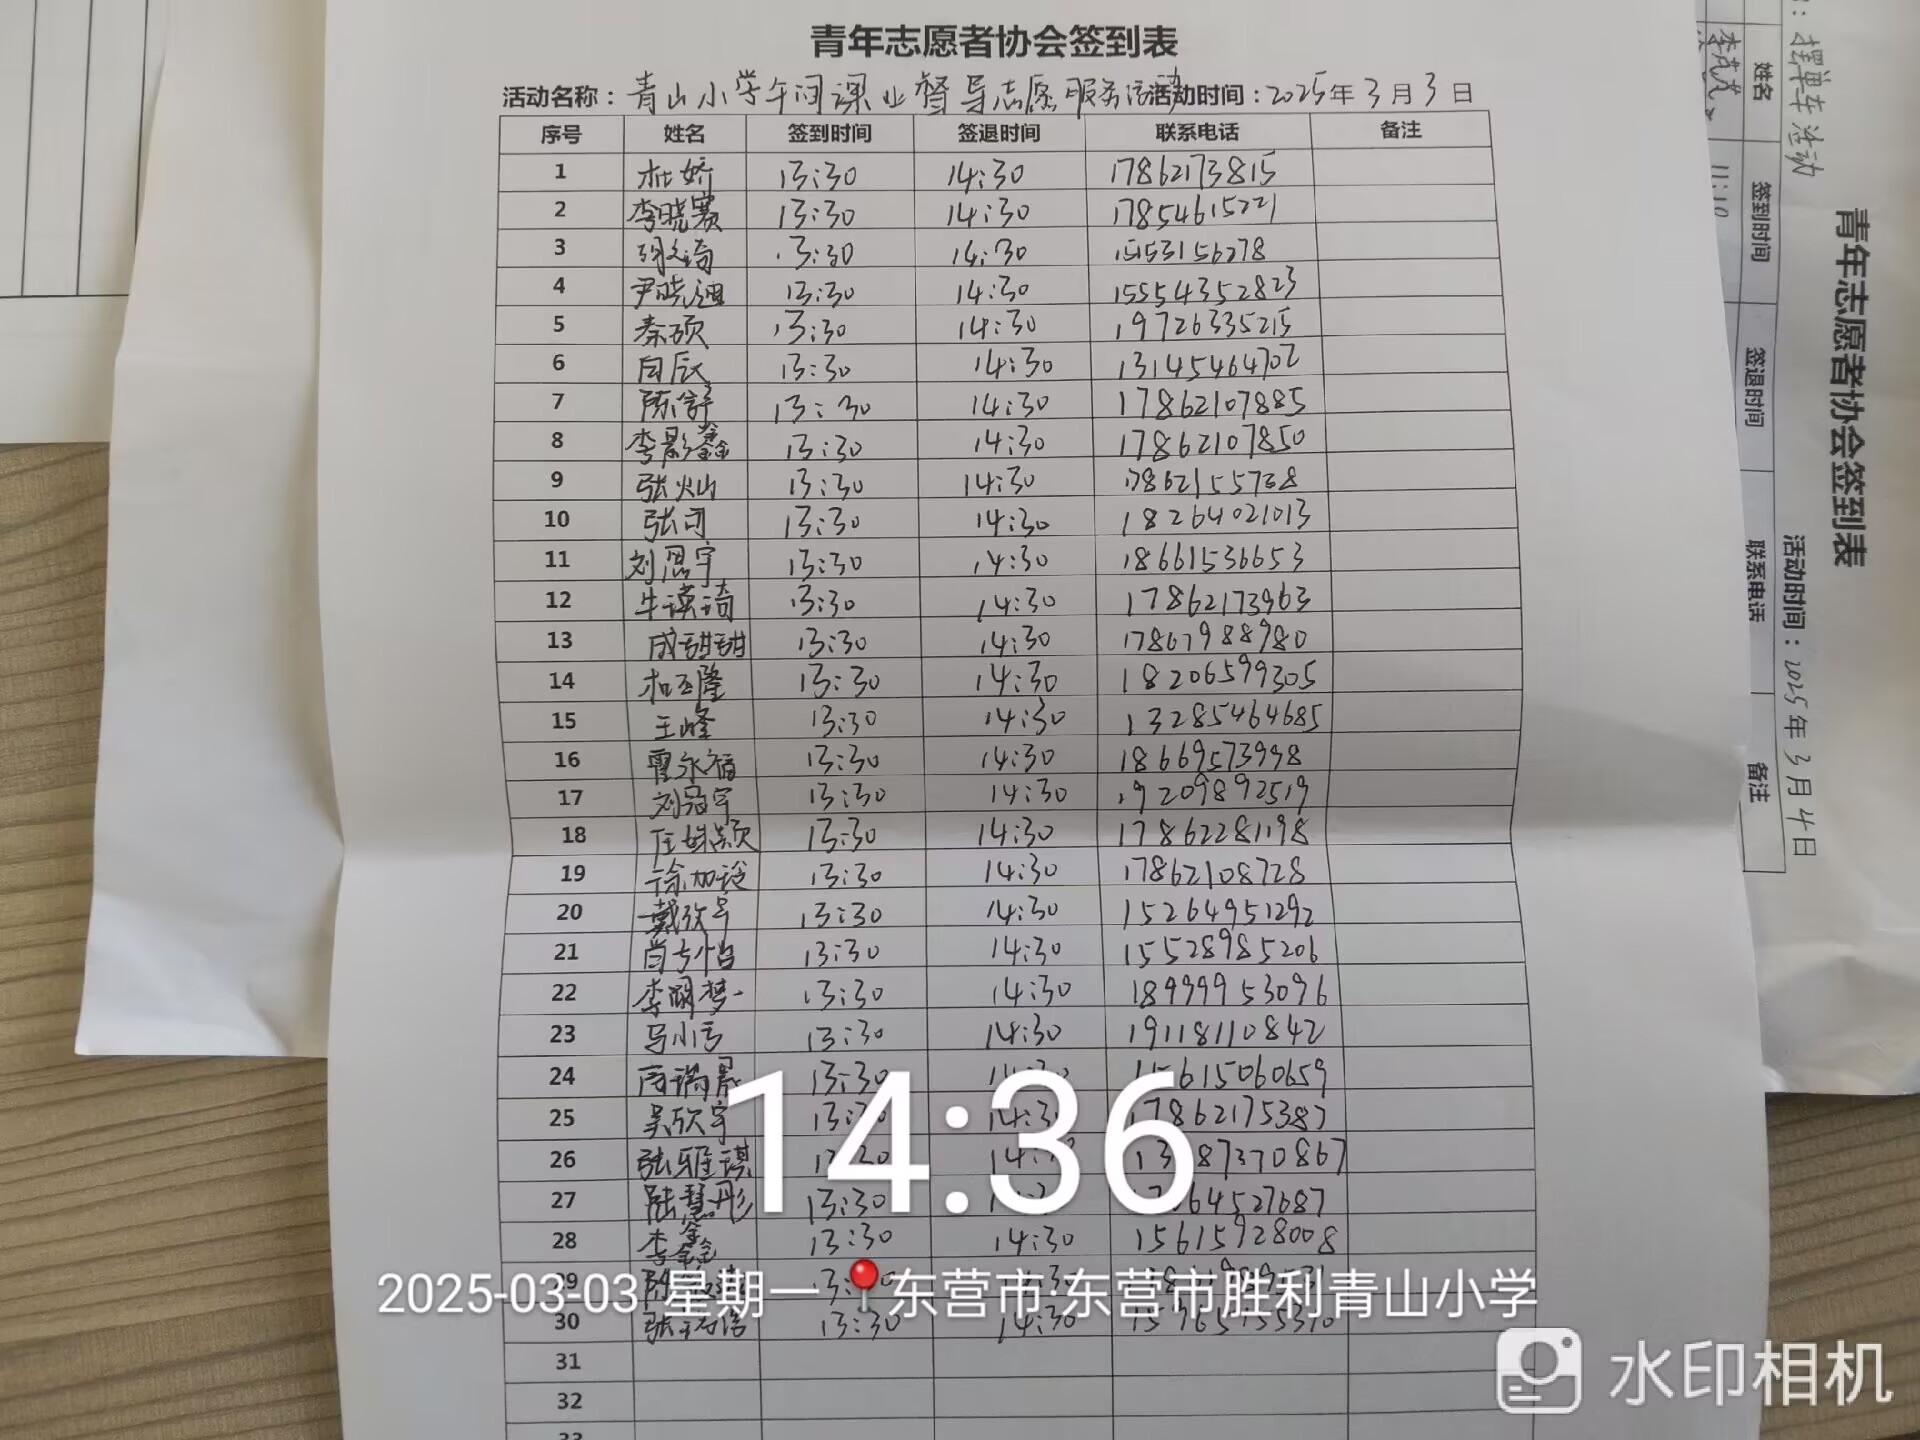 青年志愿者协会签到表
活动名称：青山小学午间课业督导志愿服务活动 活动时间：2025年3月3日
序号 姓名 签到时间 签退时间 联系电话 备注
1 杜娇 13:30 14:30 17862173815
2 李晓赛 13:30 14:30 17854615221
3 13:30 14:30 15153156278
4 尹晓迪 13:30 14:30 15554352823
5 秦硕 13:30 14:30 19726335215
6 白辰 13:30 14:30 13145464702
7 陈舒 13:30 14:30 17862107885
8 李影鑫 13:30 14:30 17862107850
9 张灿 13:30 14:30
10 张可 13:30 14:30 18264021013
11 刘恩宇 13:30 14:30 18661536653
12 牛瑛琦 13:30 14:30 17862173963
13 成甜甜 13:30 14:30 17867988980
14 13:30 14:30 18206599305
15 王峰 13:30 14:30 13285464685
16 霍永福 13:30 14:30 18669573998
17 刘冠宇 13:30 14:30 19209892519
18 13:30 14:30 17862281198
19 13:30 14:30 17862108728
20 13:30 14:30 15264951292
21 肖方怡 13:30 14:30 15528985206
22 13:30 14:30 18999953096
23 马小雨 13:30 14:30 19118110842
24 13:30 15615060659
25 吴欣宇 14:30 17862175387
26 张雅琪
27 陆慧彤 13:30
28 李鑫鑫 13:30 14:30 15615928008
29
30 13:30 14:30
31
32
33
14:36
2025-03-03 星期一 东营市·东营市胜利青山小学
水印相机
青年志愿者协会签到表
摆单车活动 活动时间：2025年3月4日
姓名 签到时间 签退时间 联系电话 备注
11:10